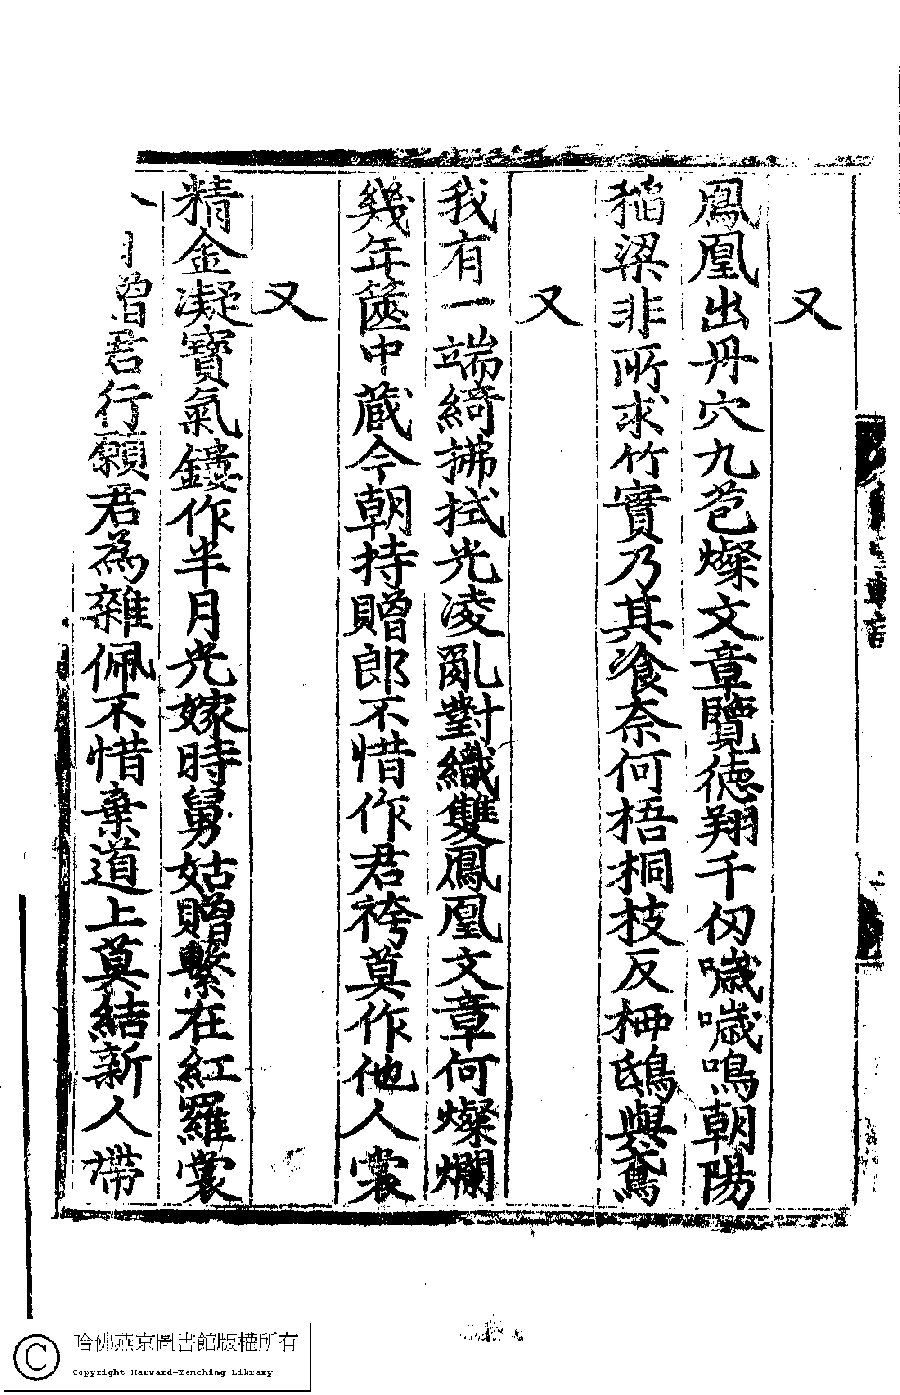 又
鳳凰出丹穴九苞燦文章覽德翔千仞噦噦鳴朝陽
稻梁非所求竹實乃其飡奈何梧桐枝反栖鴟與鳶
又
我有一端綺拂拭光凌亂對織雙鳳凰文章何燦爛
幾年篋中蔵今朝持贈郎不惜作君袴莫作他人裳
又
精金凝寶氣鏤作半月光嫁時舅姑贈繫在紅羅裳
贈君行願君為雜佩不惜棄道上莫結新人帶
哈佛燕京圖書館版權所有
Copyright Harvard-Yenching Library